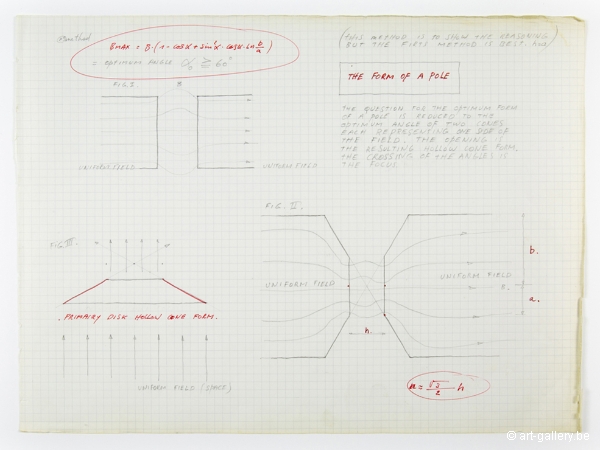 method
BMAX = B·(1 - cos α + sin²α · cos α · ln b/a)
= OPTIMUM ANGLE α/c ≥ 60°
(THIS METHOD IS TO SHOW THE REASONING)
(BUT THE FIRST METHOD IS BEST.
THE FORM OF A POLE
FIG. I
B
UNIFORM FIELD
UNIFORM FIELD.
THE QUESTION FOR THE OPTIMUM FORM
OF A POLE IS REDUCED TO THE
OPTIMUM ANGLE OF TWO CONES,
EACH REPRESENTING ONE SIDE OF
THE FIELD. THE OPENING IS
THE RESULTING HOLLOW CONE FORM,
THE CROSSING OF THE ANGLES IS
THE FOCUS.
FIG. II.
UNIFORM FIELD
UNIFORM FIELD
b.
a.
h.
a = √3/2 h
FIG. III.
PRIMAIRY DISK HOLLOW CONE FORM.
UNIFORM FIELD (SPACE)
© art-gallery.be